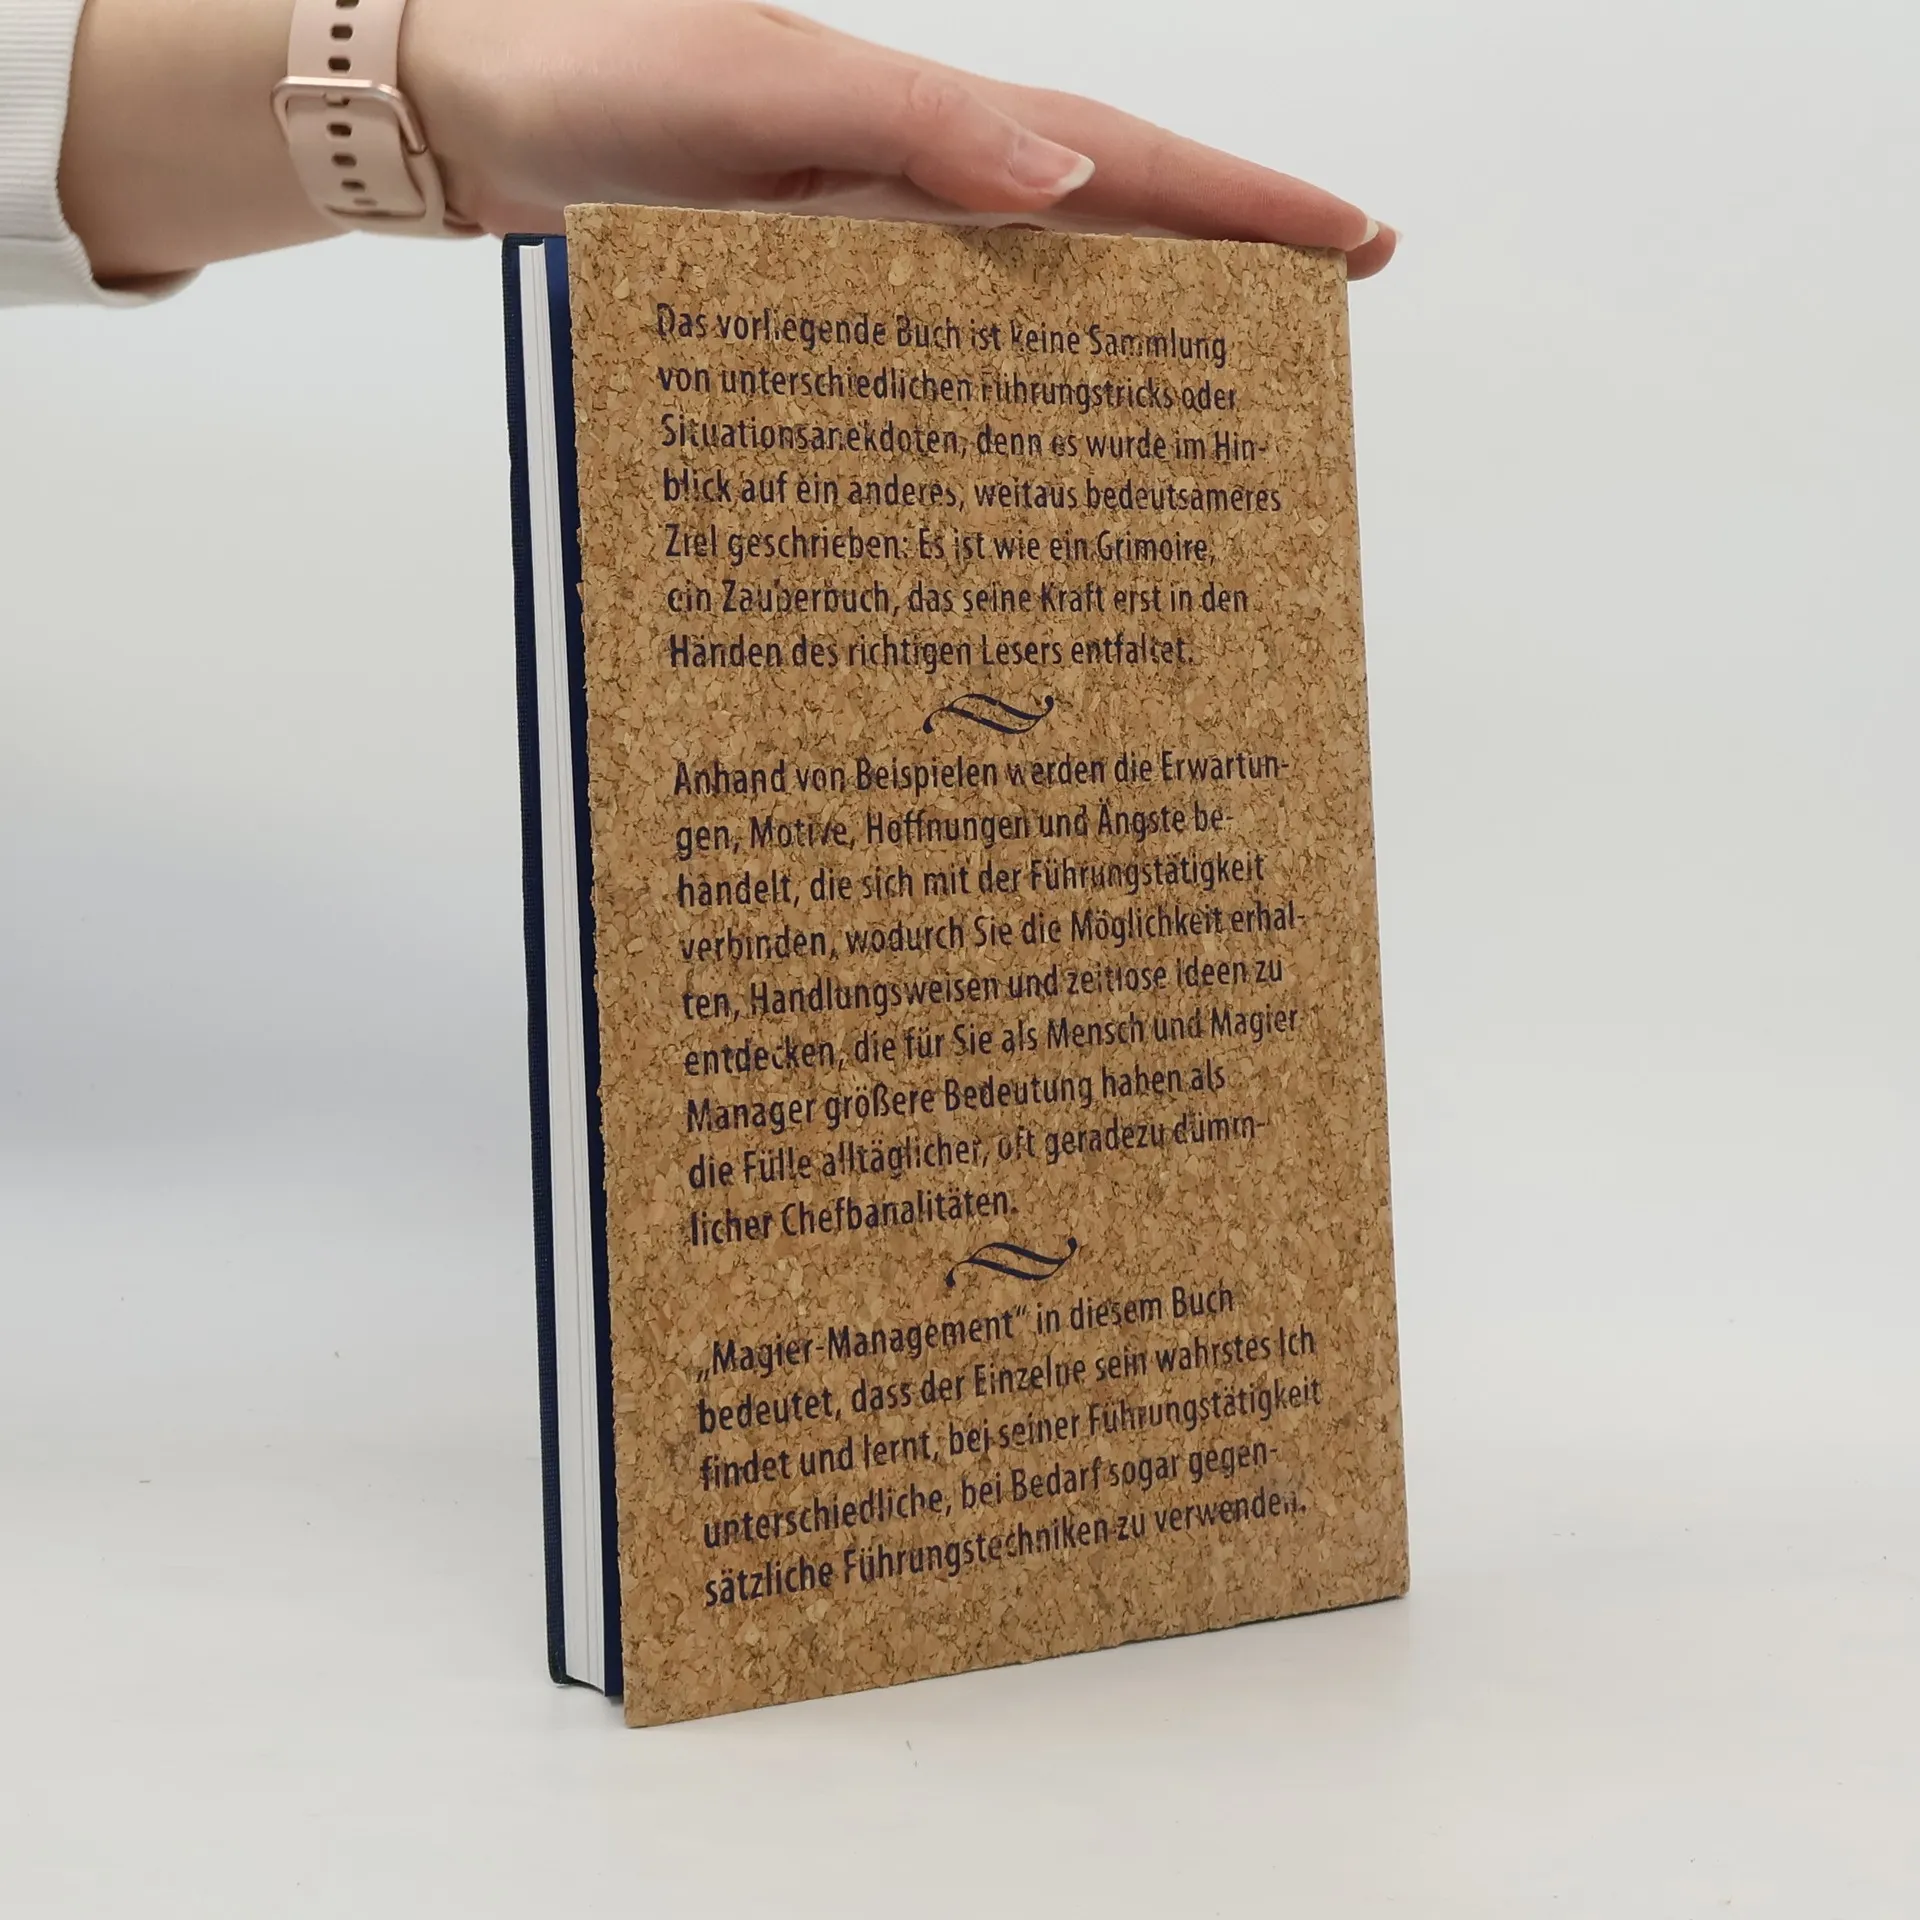 Das vorliegende Buch ist keine Sammlung
von unterschiedlichen Führungstricks oder
Situationsanekdoten, denn es wurde im Hin-
blick auf ein anderes, weitaus bedeutsameres
Ziel geschrieben: Es ist wie ein Grimoire,
ein Zauberbuch, das seine Kraft erst in den
Händen des richtigen Lesers entfaltet.
Anhand von Beispielen werden die Erwartun-
gen, Motive, Hoffnungen und Ängste be-
handelt, die sich mit der Führungstätigkeit
verbinden, wodurch Sie die Möglichkeit erhal-
ten, Handlungsweisen und zeitlose Ideen zu
entdecken, die für Sie als Mensch und Magier
Manager größere Bedeutung haben als
die Fülle alltäglicher, oft geradezu dümm-
licher Chefbanalitäten.
„Magier-Management“ in diesem Buch
bedeutet, dass der Einzelne sein wahrstes Ich
findet und lernt, bei seiner Führungstätigkeit
unterschiedliche, bei Bedarf sogar gegen-
sätzliche Führungstechniken zu verwenden.